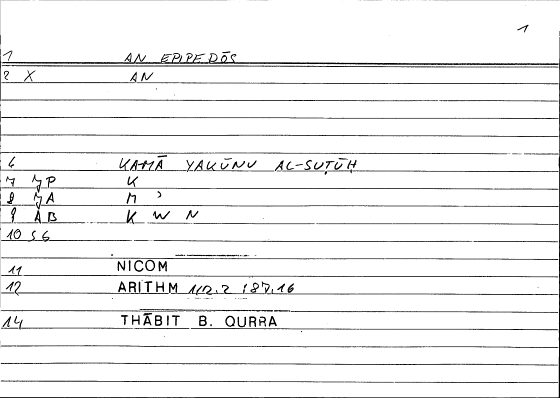 1
1 AN EPIPEDŌS
2 X AN
6 KAMĀ YAKŪNU AL-SUṬŪḤ
7 JP K
8 JA M ʾ
9 AB K W N
10 SG
11 NICOM
12 ARITHM 112.2 :87.16
14 THĀBIT B. QURRA